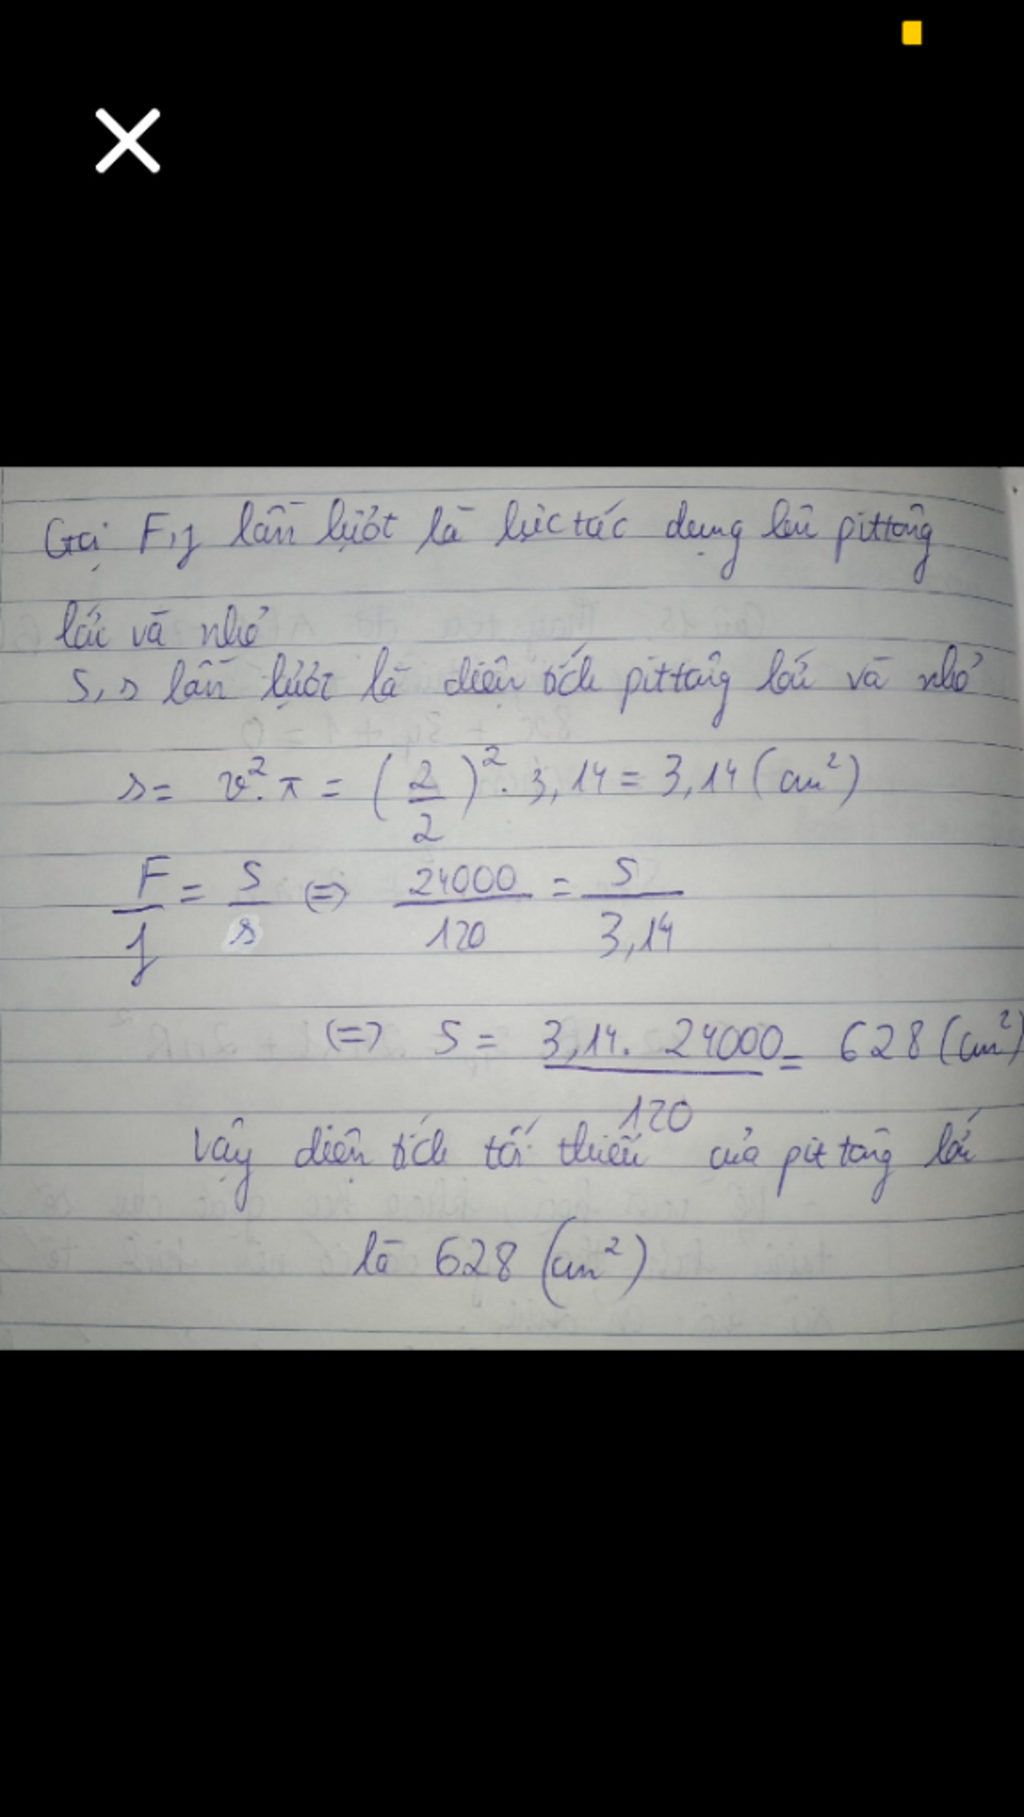 Gọi F, f lần lượt là lực tác dụng lên pittông
lớn và nhỏ
S, s lần lượt là diện tích pittông lớn và nhỏ
s = r². π = (2/2)² . 3,14 = 3,14 (cm²)
F/f = S/s <=> 24000/120 = S/3,14
<=> S = 3,14. 24000/120 = 628 (cm²)
Vậy diện tích tối thiểu của pit tông lớn
là 628 (cm²)